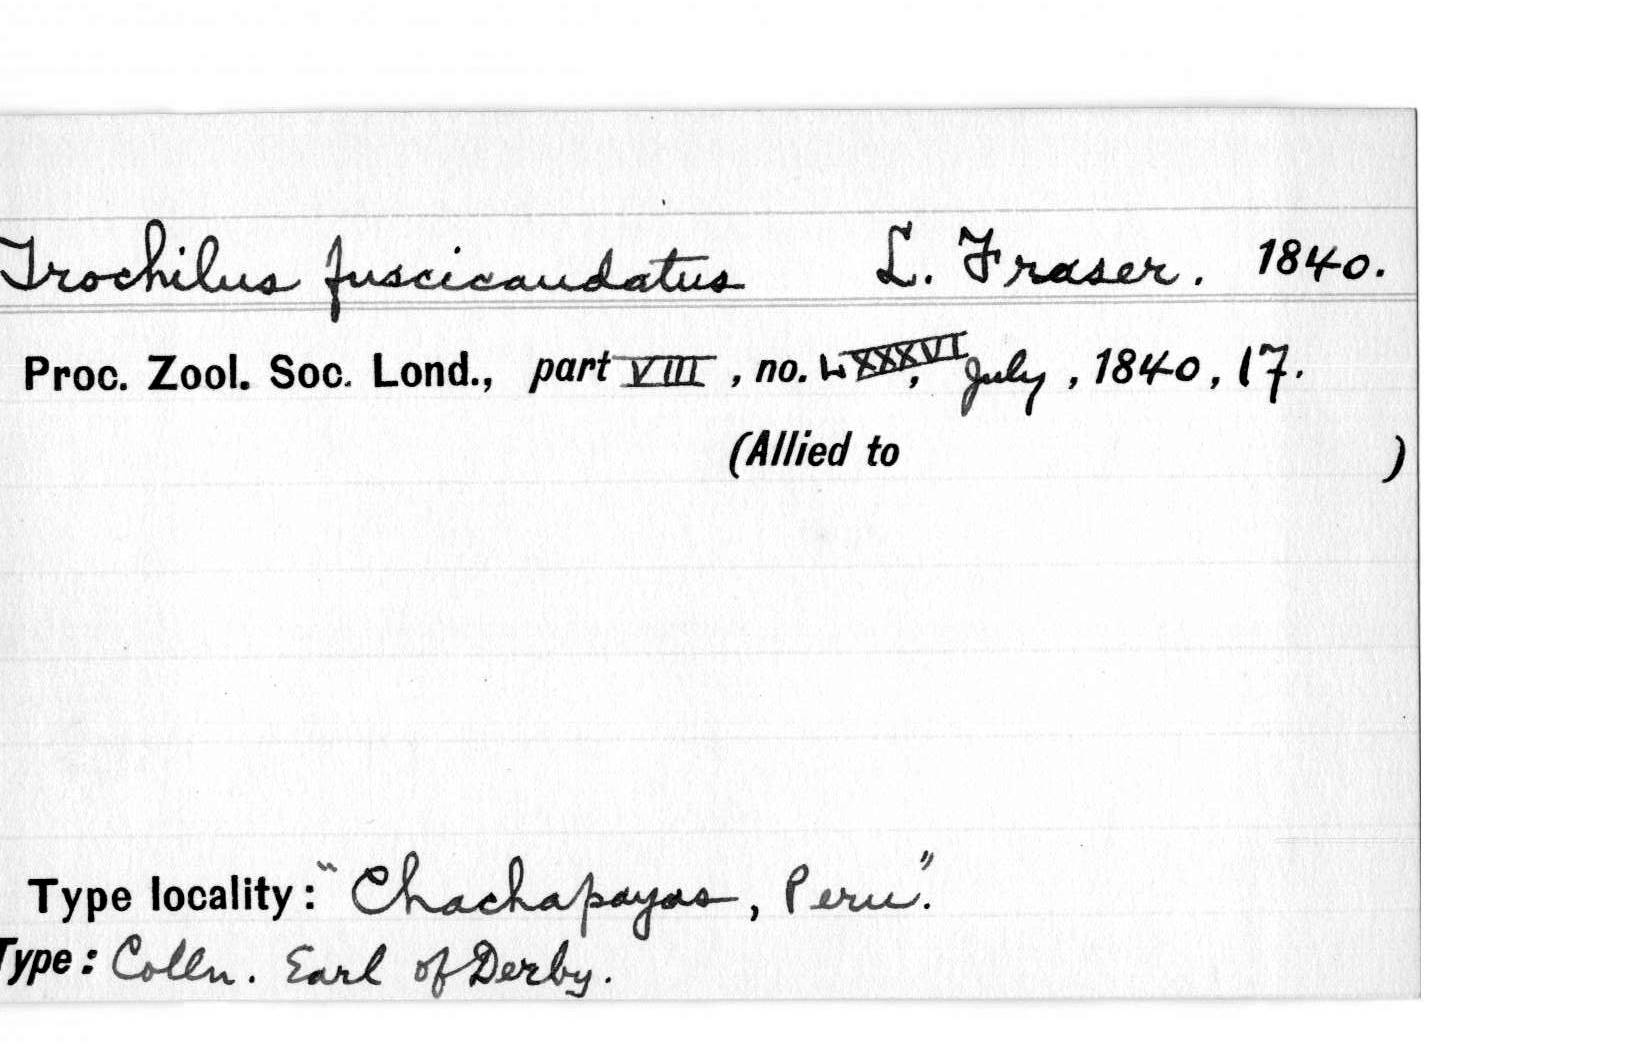 Trochilus fuscicaudatus L. Fraser. 1840.
Proc. Zool. Soc. Lond., part VIII, no. LXXXVI, July, 1840, 17.
(Allied to )
Type locality: "Chachapoyas, Peru".
Type: Colln. Earl of Derby.